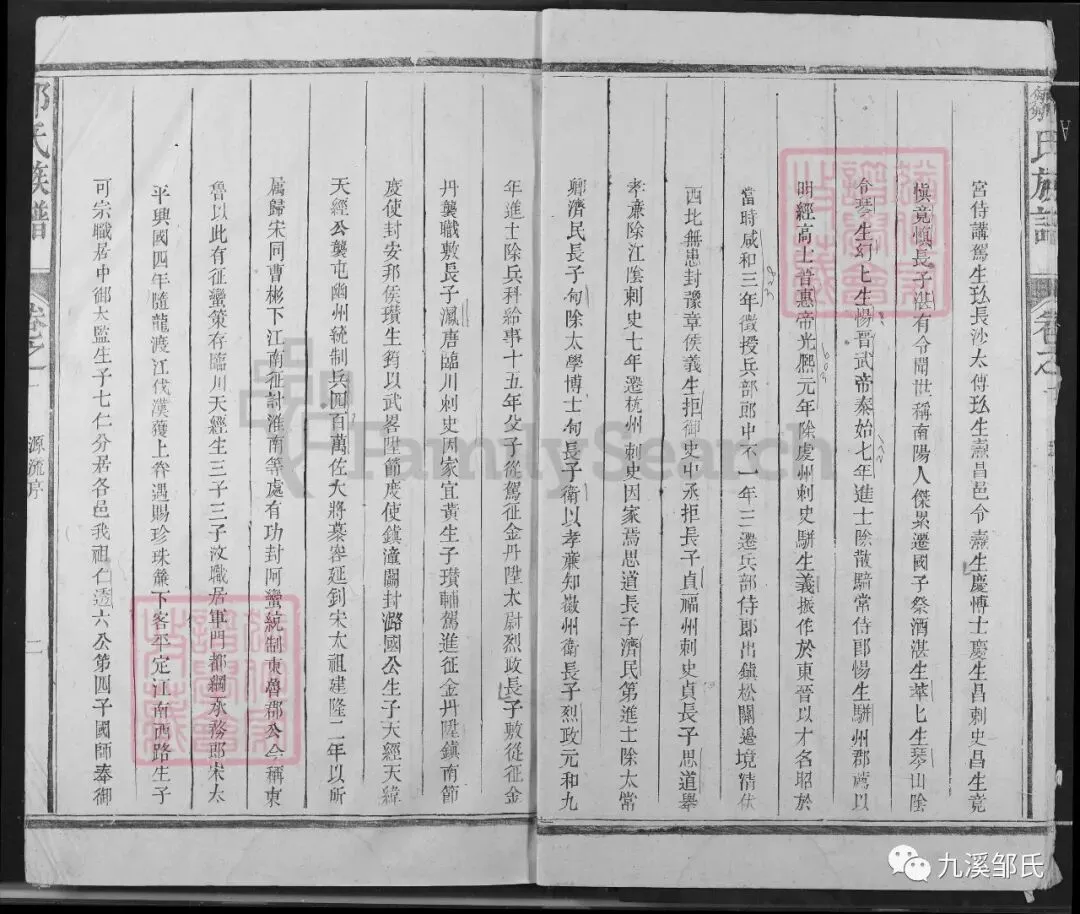 氏族譜
卷之
宮侍講駕生玖長沙太傅玖生燾昌邑令燾生慶博士慶生昌刺史昌生竟
慎竟慎長子湛有令聞世稱南陽人傑累遷國子祭酒湛生華匕生琴山陰
令琴生幻匕生惕晋武帝泰始七年進士除散騎常侍郎惕生駢州郡薦以
明經高士晉惠帝光熙元年除處州刺史駢生義振作於東晉以才名昭於
當時咸和三年徵授兵部郎中不一年三遷兵部侍郎出鎮松關邊境清伏
西北無患封豫章侯義生拒御史中丞拒長子貞福州刺史貞長子思道舉
孝亷除江陰刺史七年遷杭州刺史因家焉思道長子濟民第進士除太常
卿濟民長子旬除太學博士旬長子衛以孝亷知徽州衛長子烈政元和九
年進士除兵科給事十五年父子從駕征金丹陞太尉烈政長子敷從征金
丹襲職敷長子渢唐臨川刺史因家宜黃生子瓚輔駕進征金丹陞鎮南節
度使封安邦侯瓚生筠以武畧陞節度使鎮潼關封潞國公生子天經天緯
天經公襲屯幽州統制兵四百萬佐大將慕容延釗宋太祖建隆二年以所
屬歸宋同曹彬下江南征討淮南等處有功封阿蠻統制東魯郡公今稱東
魯以此有征蠻策存臨川天經生三子三子汝職居軍門都綱承務郎宋太
平興國四年隨龍渡江伐漢獲上眷遇賜珍珠簾下客平定江南西路生子
可宗職居中御大監生子七仁分居各邑我祖仁透六公第四子國師奉御
鄒氏族譜
卷之一
源流序
一
FamilySearch
九溪邹氏